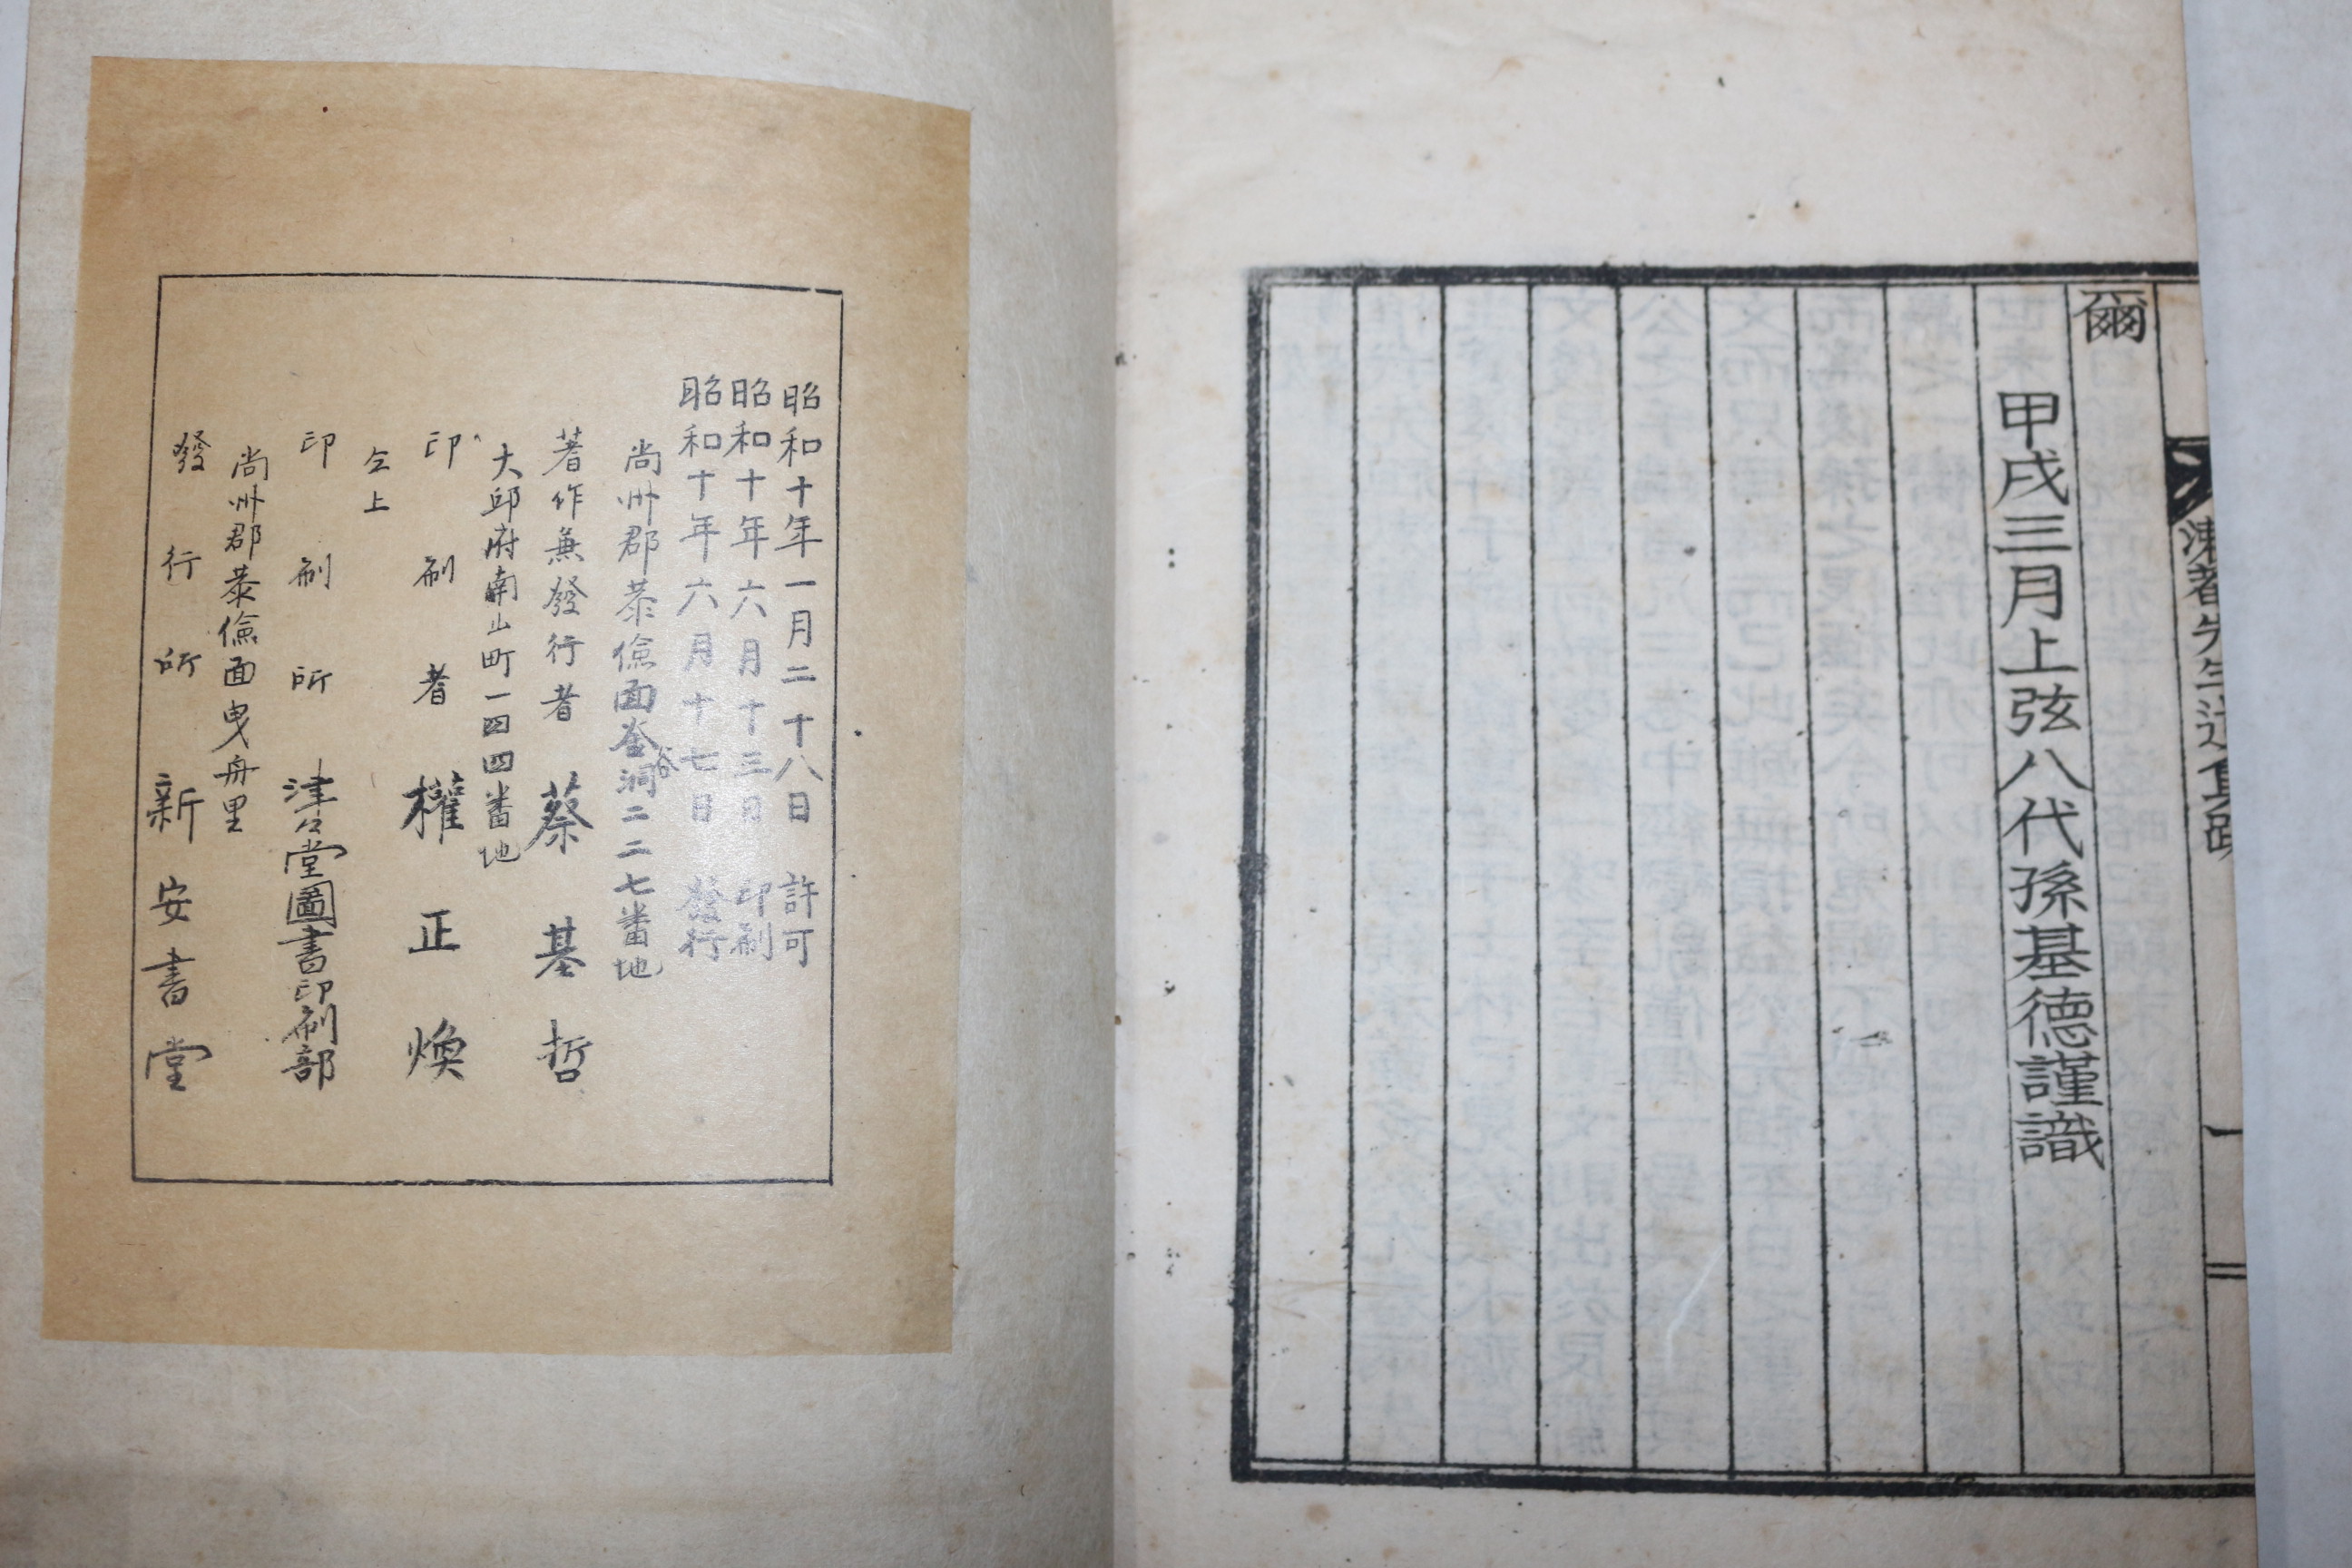 爾
甲戌三月上弦八代孫基德謹識
昭和十年一月二十八日 許可
昭和十年六月十三日 印刷
昭和十年六月十七日 發行
尚州郡恭儉面 洞二二七番地
著作兼發行者 蔡基哲
大邱府南山町一四四番地
印刷者 權正煥
仝上
印刷所 津々堂圖書印刷部
尚州郡恭儉面曳舟里
發行所 新安書堂